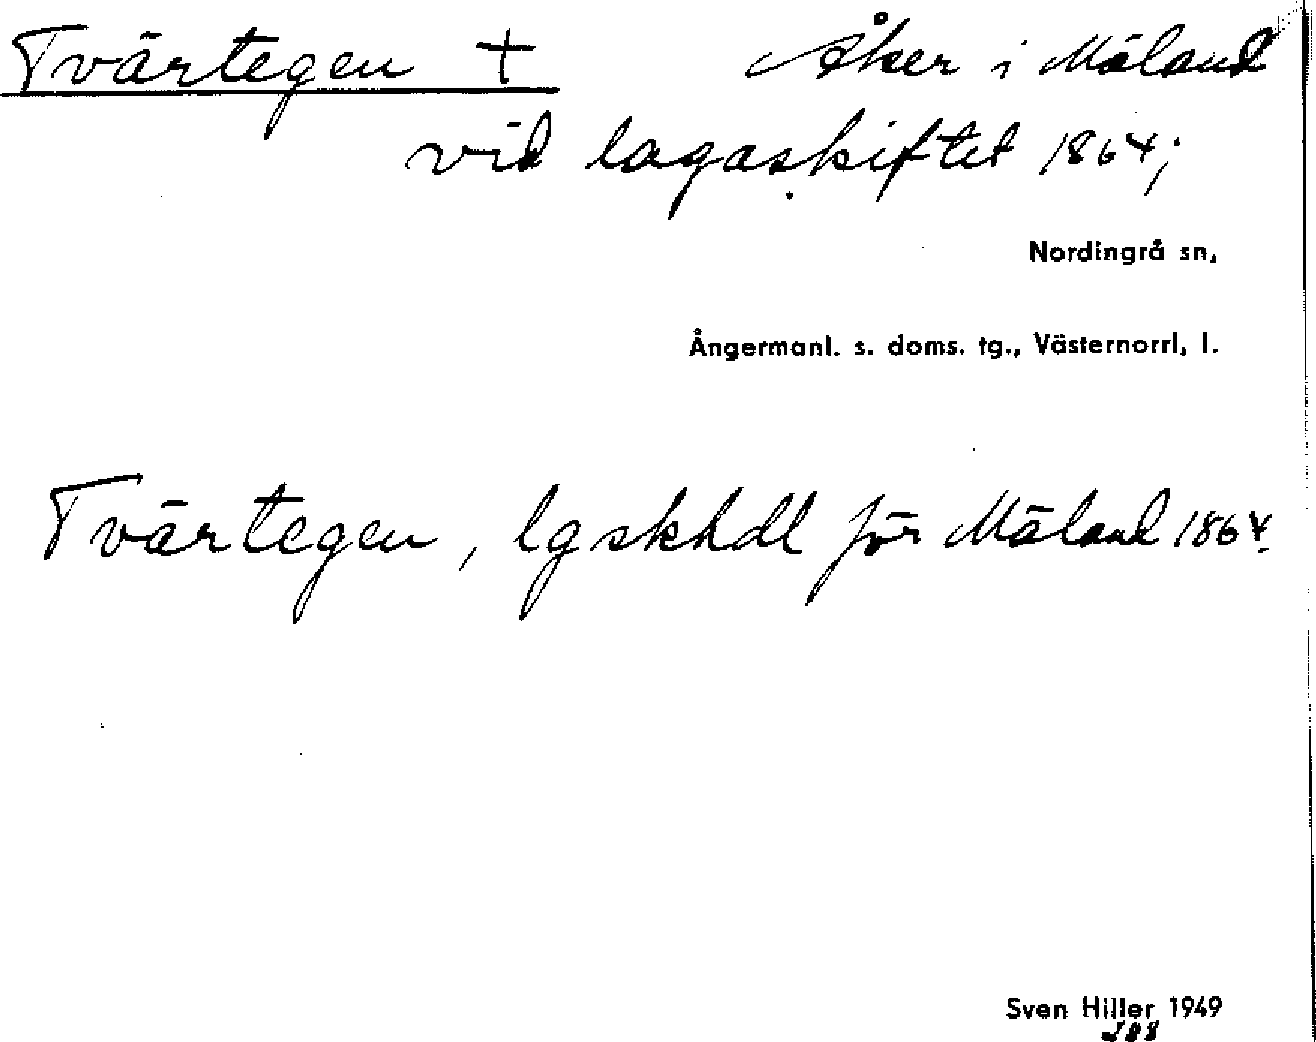 Tvärtegen + Åker i Mäland
vid lagaskiftet 1864;
Nordingrå sn,
Ångermanl. s. doms. tg., Västernorrl, l.
Tvärtegen, lgskhdl för Mäland 1864.
Sven Hiller 1949